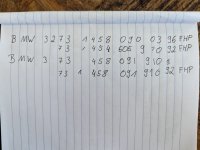 BMW 3273 1 458 090 03 96 FHP
73 1 494 606 9 70 92 FHP
BMW 3 73 458 091 910 8
73 1 458 091 910 92 FHP